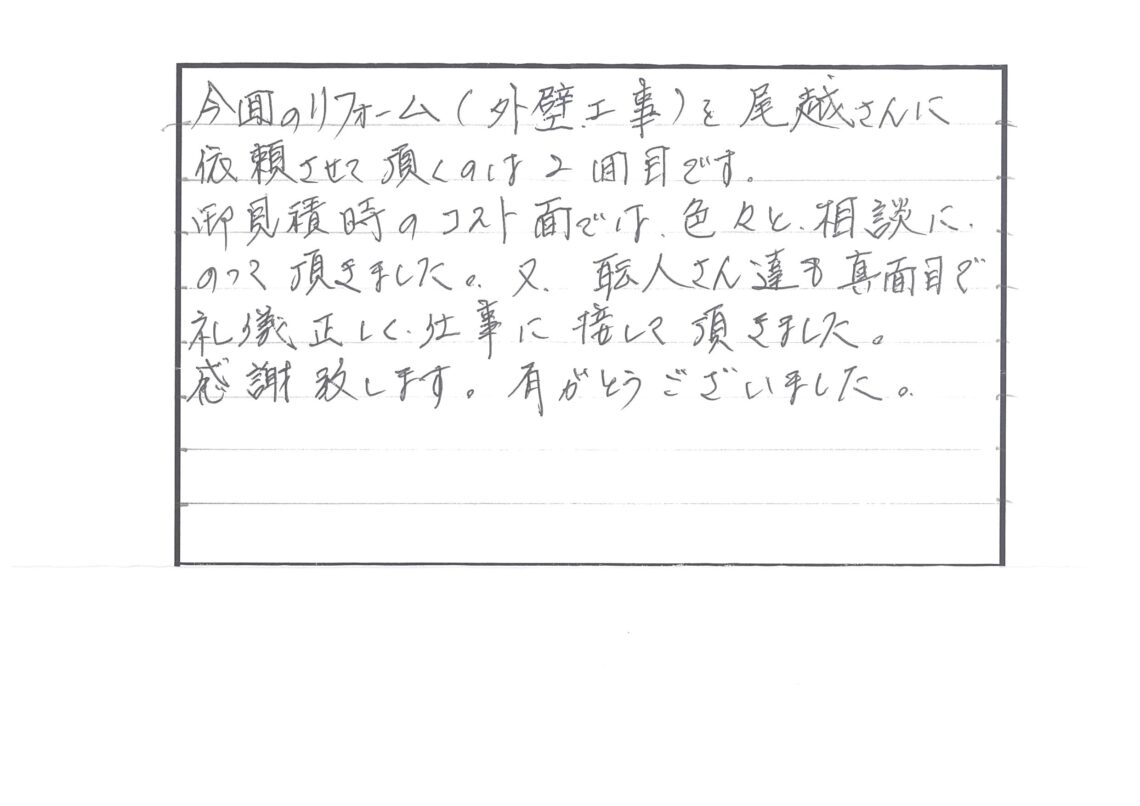 今回のリフォーム(外壁工事)を尾越さんに
依頼させて頂くのは2回目です。
御見積時のコスト面では、色々と、相談に
のって頂きました。又、職人さん達も真面目で
礼儀正しく仕事に接して頂きました。
感謝致します。有がとうございました。